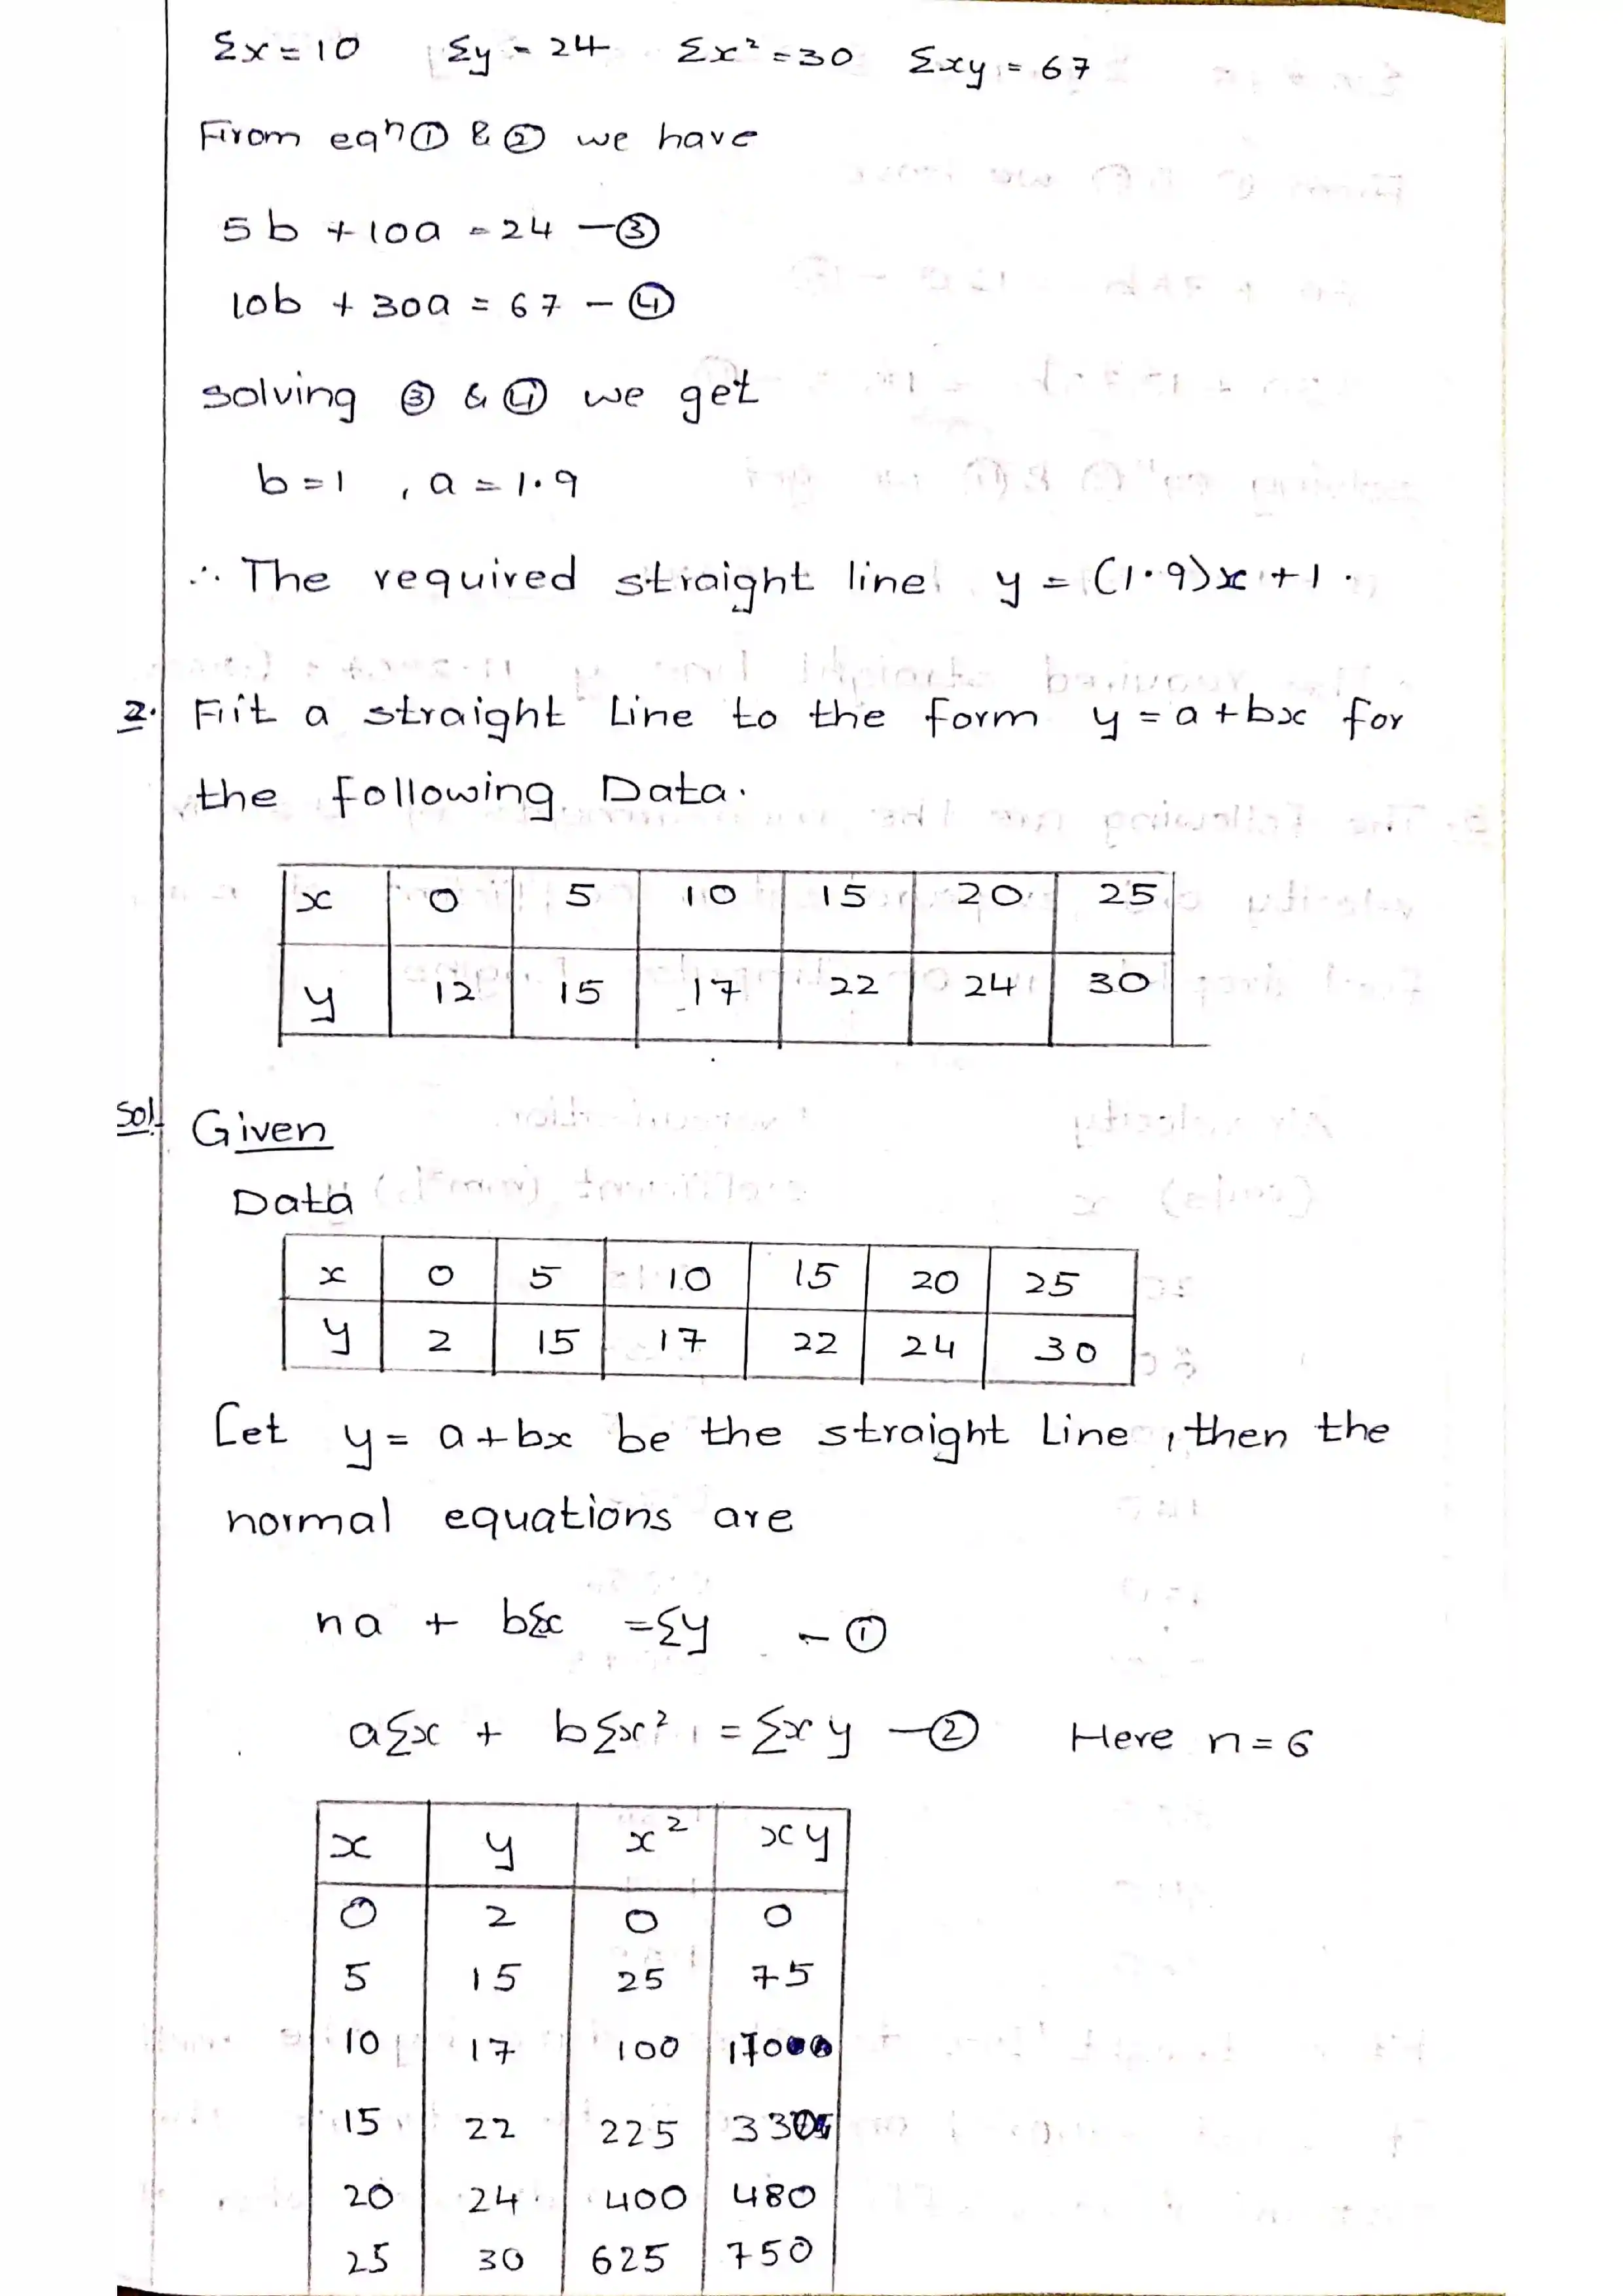 Σx = 10 Σy = 24 Σx² = 30 Σxy = 67
From eqn ① & ② we have
5b + 10a = 24 — ③
10b + 30a = 67 — ④
solving ③ & ④ we get
b = 1 , a = 1.9
∴ The required straight line y = (1.9)x + 1 .
2. Fit a straight Line to the form y = a + bx for
the following Data.
x 0 5 10 15 20 25
y 12 15 17 22 24 30
Sol. Given
Data
x 0 5 10 15 20 25
y 2 15 17 22 24 30
Let y = a + bx be the straight Line , then the
normal equations are
na + bΣx = Σy — ①
aΣx + bΣx² = Σxy — ② Here n = 6
x y x² xy
0 2 0 0
5 15 25 75
10 17 100 170
15 22 225 330
20 24 400 480
25 30 625 750